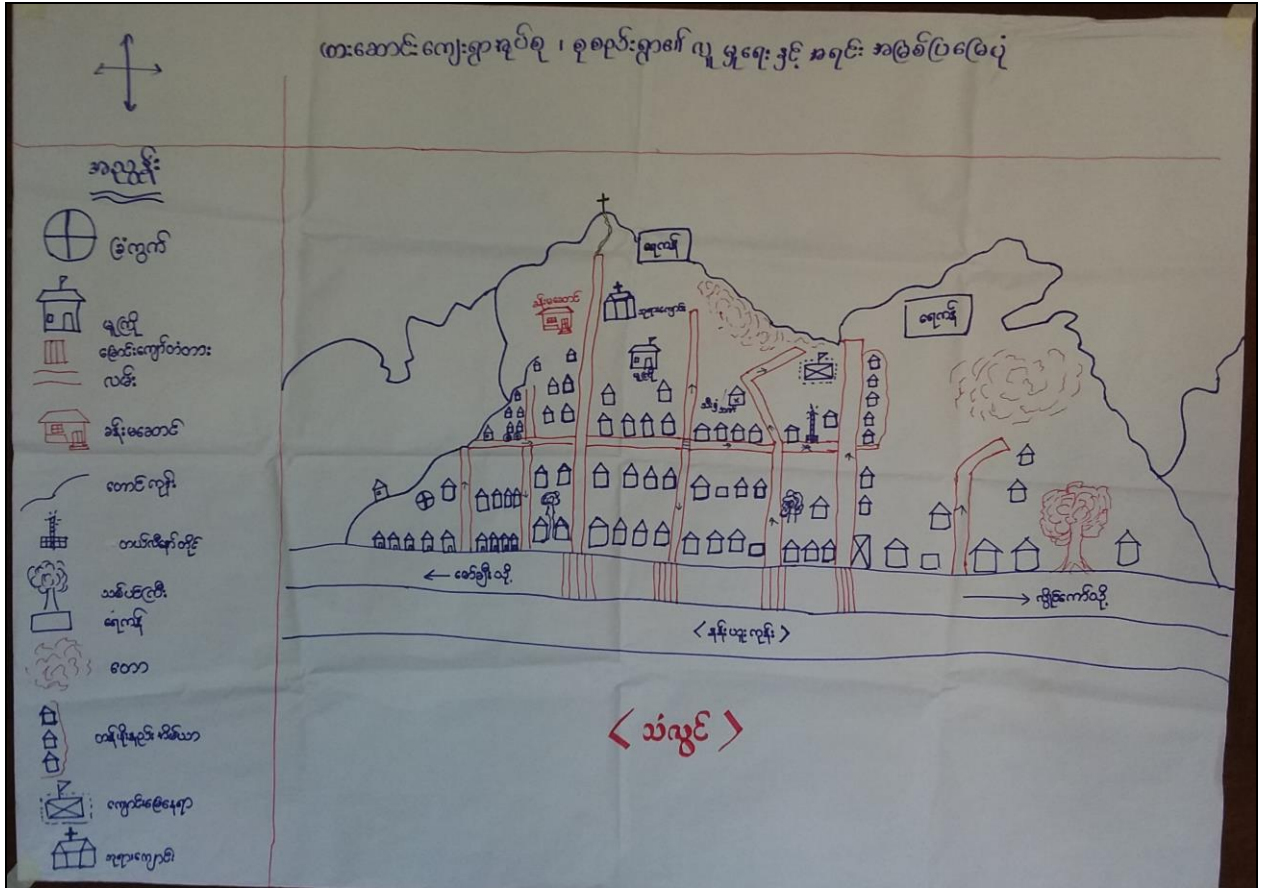 ထားဆောင်းကျေးရွာအုပ်စု ၊ စုစည်းရွာ၏ လူမှုရေးနှင့် အရင်းအမြစ်ပြမြေပုံ
အညွှန်း
ခြံကွက်
မူကြို
မြောင်းကျော်တံတား
လမ်း
ခန်းမဆောင်
တောင်ကုန်း
တယ်လီနောတိုင်
သစ်ပင်ကြီး
ရေကန်
တော
တန်ဖိုးနည်းအိမ်ယာ
ကျောင်းမြေနေရာ
ဘုရားကျောင်း
ရေကန်
ရေကန်
ခန်းမဆောင်
ဘုရားကျောင်း
မူကြို
← မော်ချီးသို့
→ လွိုင်ကော်သို့
< သံလွင် >